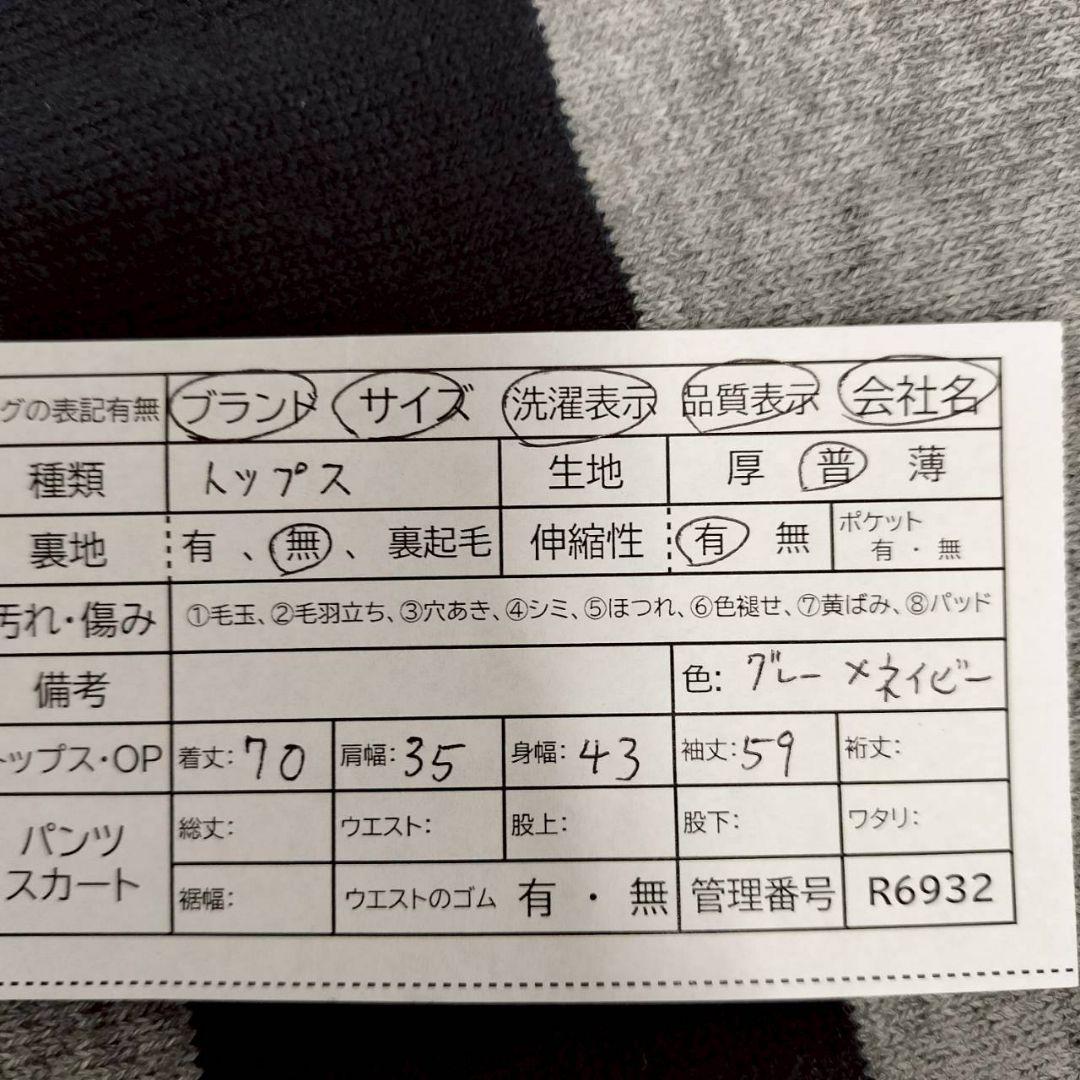 グの表記有無 ブランド サイズ 洗濯表示 品質表示 会社名
種類 トップス 生地 厚 普 薄
裏地 有 、無 、裏起毛 伸縮性 有 無 ポケット 有・無
汚れ・傷み ①毛玉、②毛羽立ち、③穴あき、④シミ、⑤ほつれ、⑥色褪せ、⑦黄ばみ、⑧パッド
備考 色: グレー×ネイビー
トップス・OP 着丈: 70 肩幅: 35 身幅: 43 袖丈: 59 裄丈:
パンツ スカート 総丈: ウエスト: 股上: 股下: ワタリ:
裾幅: ウエストのゴム 有・無 管理番号 R6932